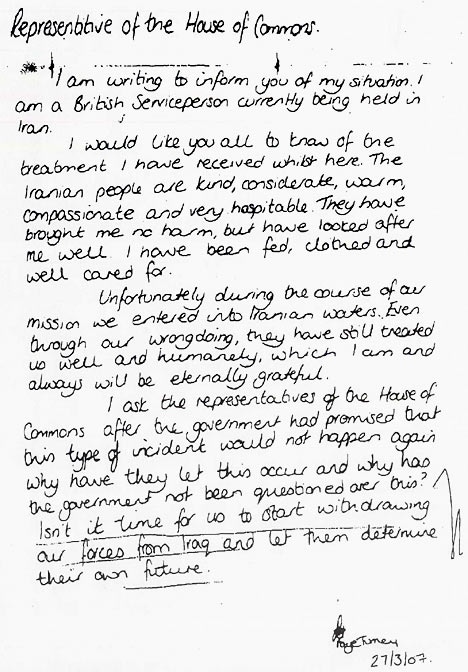 Representitive of the House of Commons.
I am writing to inform you of my situation. I
am a British Serviceperson currently being held in
Iran.
I would like you all to know of the
treatment I have received whilst here. The
Iranian people are kind, considerate, warm,
compassionate and very hospitable. They have
brought me no harm, but have looked after
me well. I have been fed, clothed and
well cared for.
Unfortunately during the course of our
mission we entered into Iranian waters. Even
through our wrongdoing, they have still treated
us well and humanely, which I am and
always will be eternally grateful.
I ask the representatives of the House of
Commons after the government had promised that
this type of incident would not happen again
why have they let this occur and why has
the government not been questioned over this?
Isn't it time for us to start withdrawing
our forces from Iraq and let them determine
their own future.
Faye Turney
27/3/07.